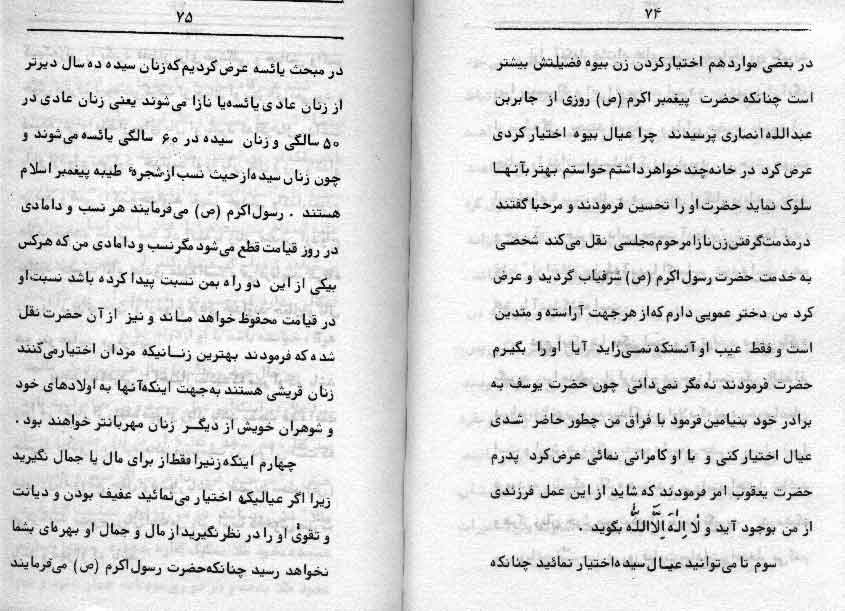 ۷۴
در بعضی موارد هم اختیار کردن زن بیوه فضیلتش بیشتر
است چنانکه حضرت پیغمبر اکرم (ص) روزی از جابربن
عبدالله انصاری پرسیدند چرا عیال بیوه اختیار کردی
عرض کرد در خانه چند خواهر داشتم خواستم بهتر بآنهـا
سلوک نماید حضرت او را تحسین فرمودند و مرحبا گفتند
درمذمت گرفتن زن نازا مرحوم مجلسی نقل می‌کند شخصی
به خدمت حضرت رسول اکرم (ص) شرفیاب گردید و عرض
کرد من دختر عمویی دارم که از هر جهت آراسته و متدین
است و فقط عیب او آنستکه نمـی‌زاید آیا او را بگیرم
حضرت فرمودند نه مگر نمی‌دانی چون حضرت یوسف به
برادر خود بنیامین فرمود با فراق من چطور حاضر شدی
عیال اختیار کنی و با او کامرانی نمائی عرض کرد پدرم
حضرت یعقوب امر فرمودند که شاید از این عمل فرزندی
از من بوجود آید و لٰا اِلٰهَ اِلَّا اللّٰه بگوید .
سوم تا می‌توانید عیـال سیده اختیار نمائید چنانکه
۷۵
در مبحث یائسه عرض کردیم که زنان سیده ده سال دیرتر
از زنان عادی یائسه یا نازا می‌شوند یعنی زنان عادی در
۵۰ سالگی و زنان سیده در ۶۰ سالگی یائسه می‌شوند و
چون زنان سیده از حیث نسب از شجرهٔ طیبه پیغمبر اسلام
هستند . رسول اکرم (ص) می‌فرمایند هر نسب و دامادی
در روز قیامت قطع می‌شود مگر نسب و دامادی من که هرکس
بیکی از این دو راه بمن نسبت پیدا کرده باشد نسبت او
در قیامت محفوظ خواهد مـاند و نیز از آن حضرت نقل
شده که فرمودند بهترین زنـانیکه مردان اختیار می‌کنند
زنان قریشی هستند به جهت اینکه آنها به اولادهای خود
و شوهران خویش از دیگـر زنان مهربانتر خواهند بود .
چهارم اینکه زنیرا فقط از برای مال یا جمال نگیرید
زیرا اگر عیالیکه اختیار می‌نمائید عفیف بودن و دیانت
و تقوی او را در نظر نگیرید از مال و جمال او بهره‌ای بشما
نخواهد رسید چنانکه حضرت رسول اکرم (ص) می‌فرمایند